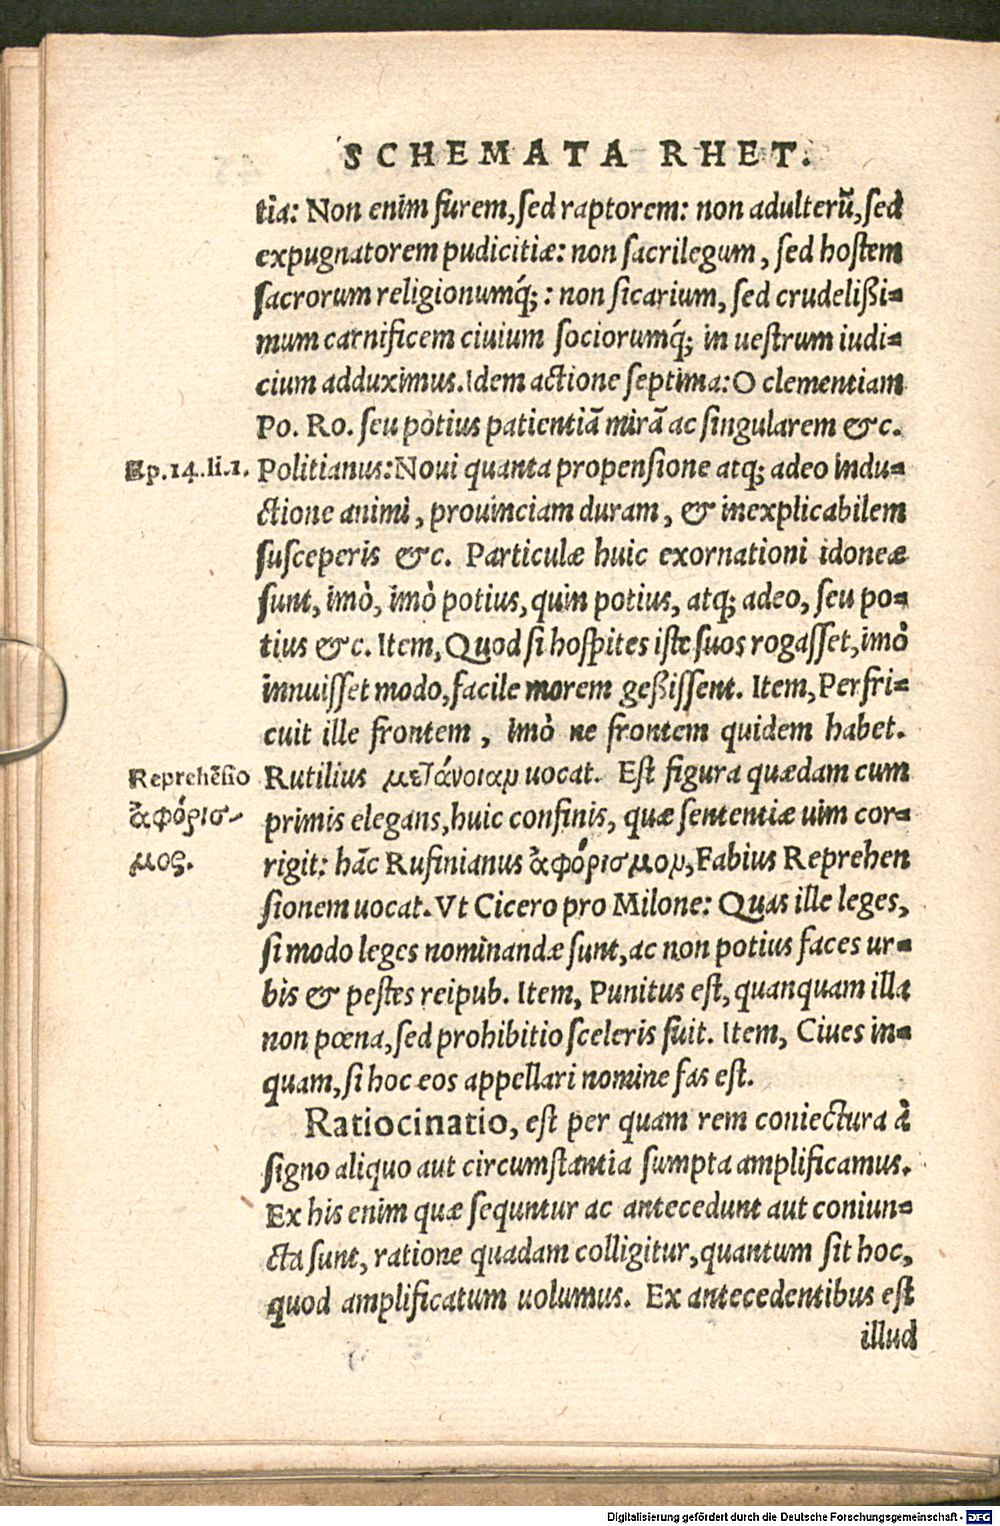 SCHEMATA RHET.
tia: Non enim furem, sed raptorem: non adulterū, sed
expugnatorem pudicitiæ: non sacrilegum, sed hostem
sacrorum religionumq́;: non sicarium, sed crudelißi=
mum carnificem ciuium sociorumq́; in uestrum iudi=
cium adduximus. Idem actione septima: O clementiam
Po. Ro. seu potius patientiā mirā ac singularem &c.
Ep.14.li.1.
Politianus: Noui quanta propensione atq; adeo indu=
ctione animi, prouinciam duram, & inexplicabilem
susceperis &c. Particulæ huic exornationi idoneæ
sunt, imò, imò potius, quin potius, atq; adeo, seu po=
tius &c. Item, Quod si hospites iste suos rogasset, imò
innuisset modo, facile morem geßissent. Item, Perfri=
cuit ille frontem, imò ne frontem quidem habet.
Reprehēsio
ἀφόρισ-
μος.
Rutilius μετάνοιαν uocat. Est figura quædam cum
primis elegans, huic confinis, quæ sententiæ uim cor=
rigit: hāc Rufinianus ἀφόρισμον, Fabius Reprehen
sionem uocat. Vt Cicero pro Milone: Quas ille leges,
si modo leges nominandæ sunt, ac non potius faces ur=
bis & pestes reipub. Item, Punitus est, quanquam illa
non pœna, sed prohibitio sceleris fuit. Item, Ciues in=
quam, si hoc eos appellari nomine fas est.
Ratiocinatio, est per quam rem coniectura à
signo aliquo aut circumstantia sumpta amplificamus.
Ex his enim quæ sequntur ac antecedunt aut coniun=
cta sunt, ratione quadam colligitur, quantum sit hoc,
quod amplificatum uolumus. Ex antecedentibus est
illud
Digitalisierung gefördert durch die Deutsche Forschungsgemeinschaft - DFG